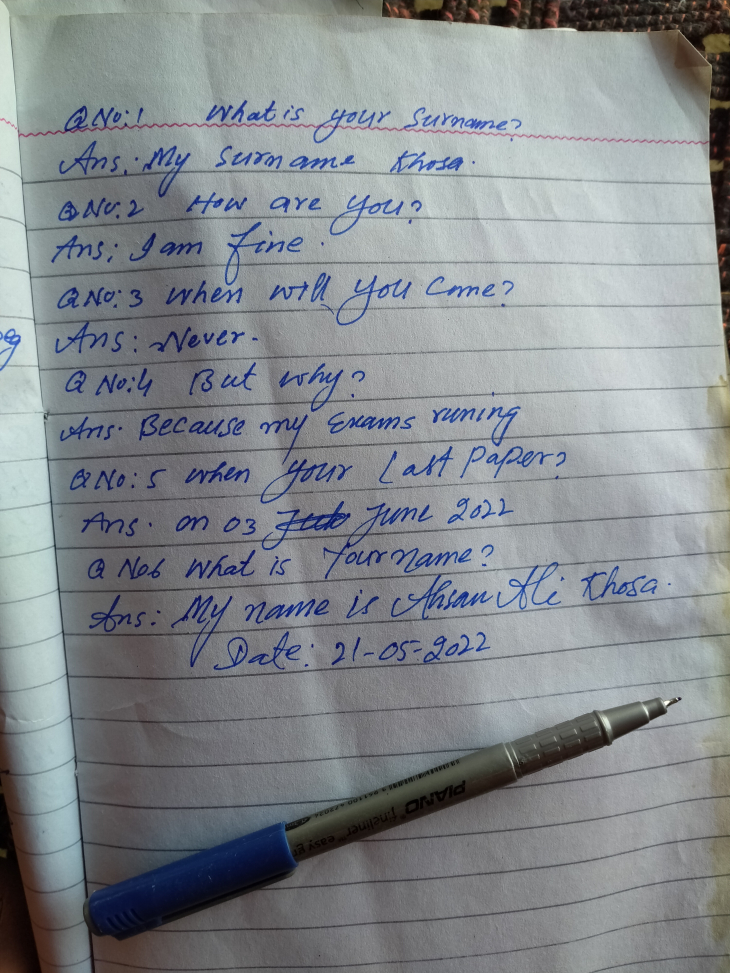 Q No:1 What is your Surname?
Ans: My Surname Khosa.
Q No:2 How are you?
Ans: I am fine.
Q No:3 when will you come?
Ans: Never.
Q No:4 But why?
Ans. Because my Exams runing
Q No:5 when your Last Paper?
Ans. on 03 June 2022
Q No6 What is Your name?
Ans: My name is Ahsan Ali Khosa.
Date: 21-05-2022
PIANO fineliner easy